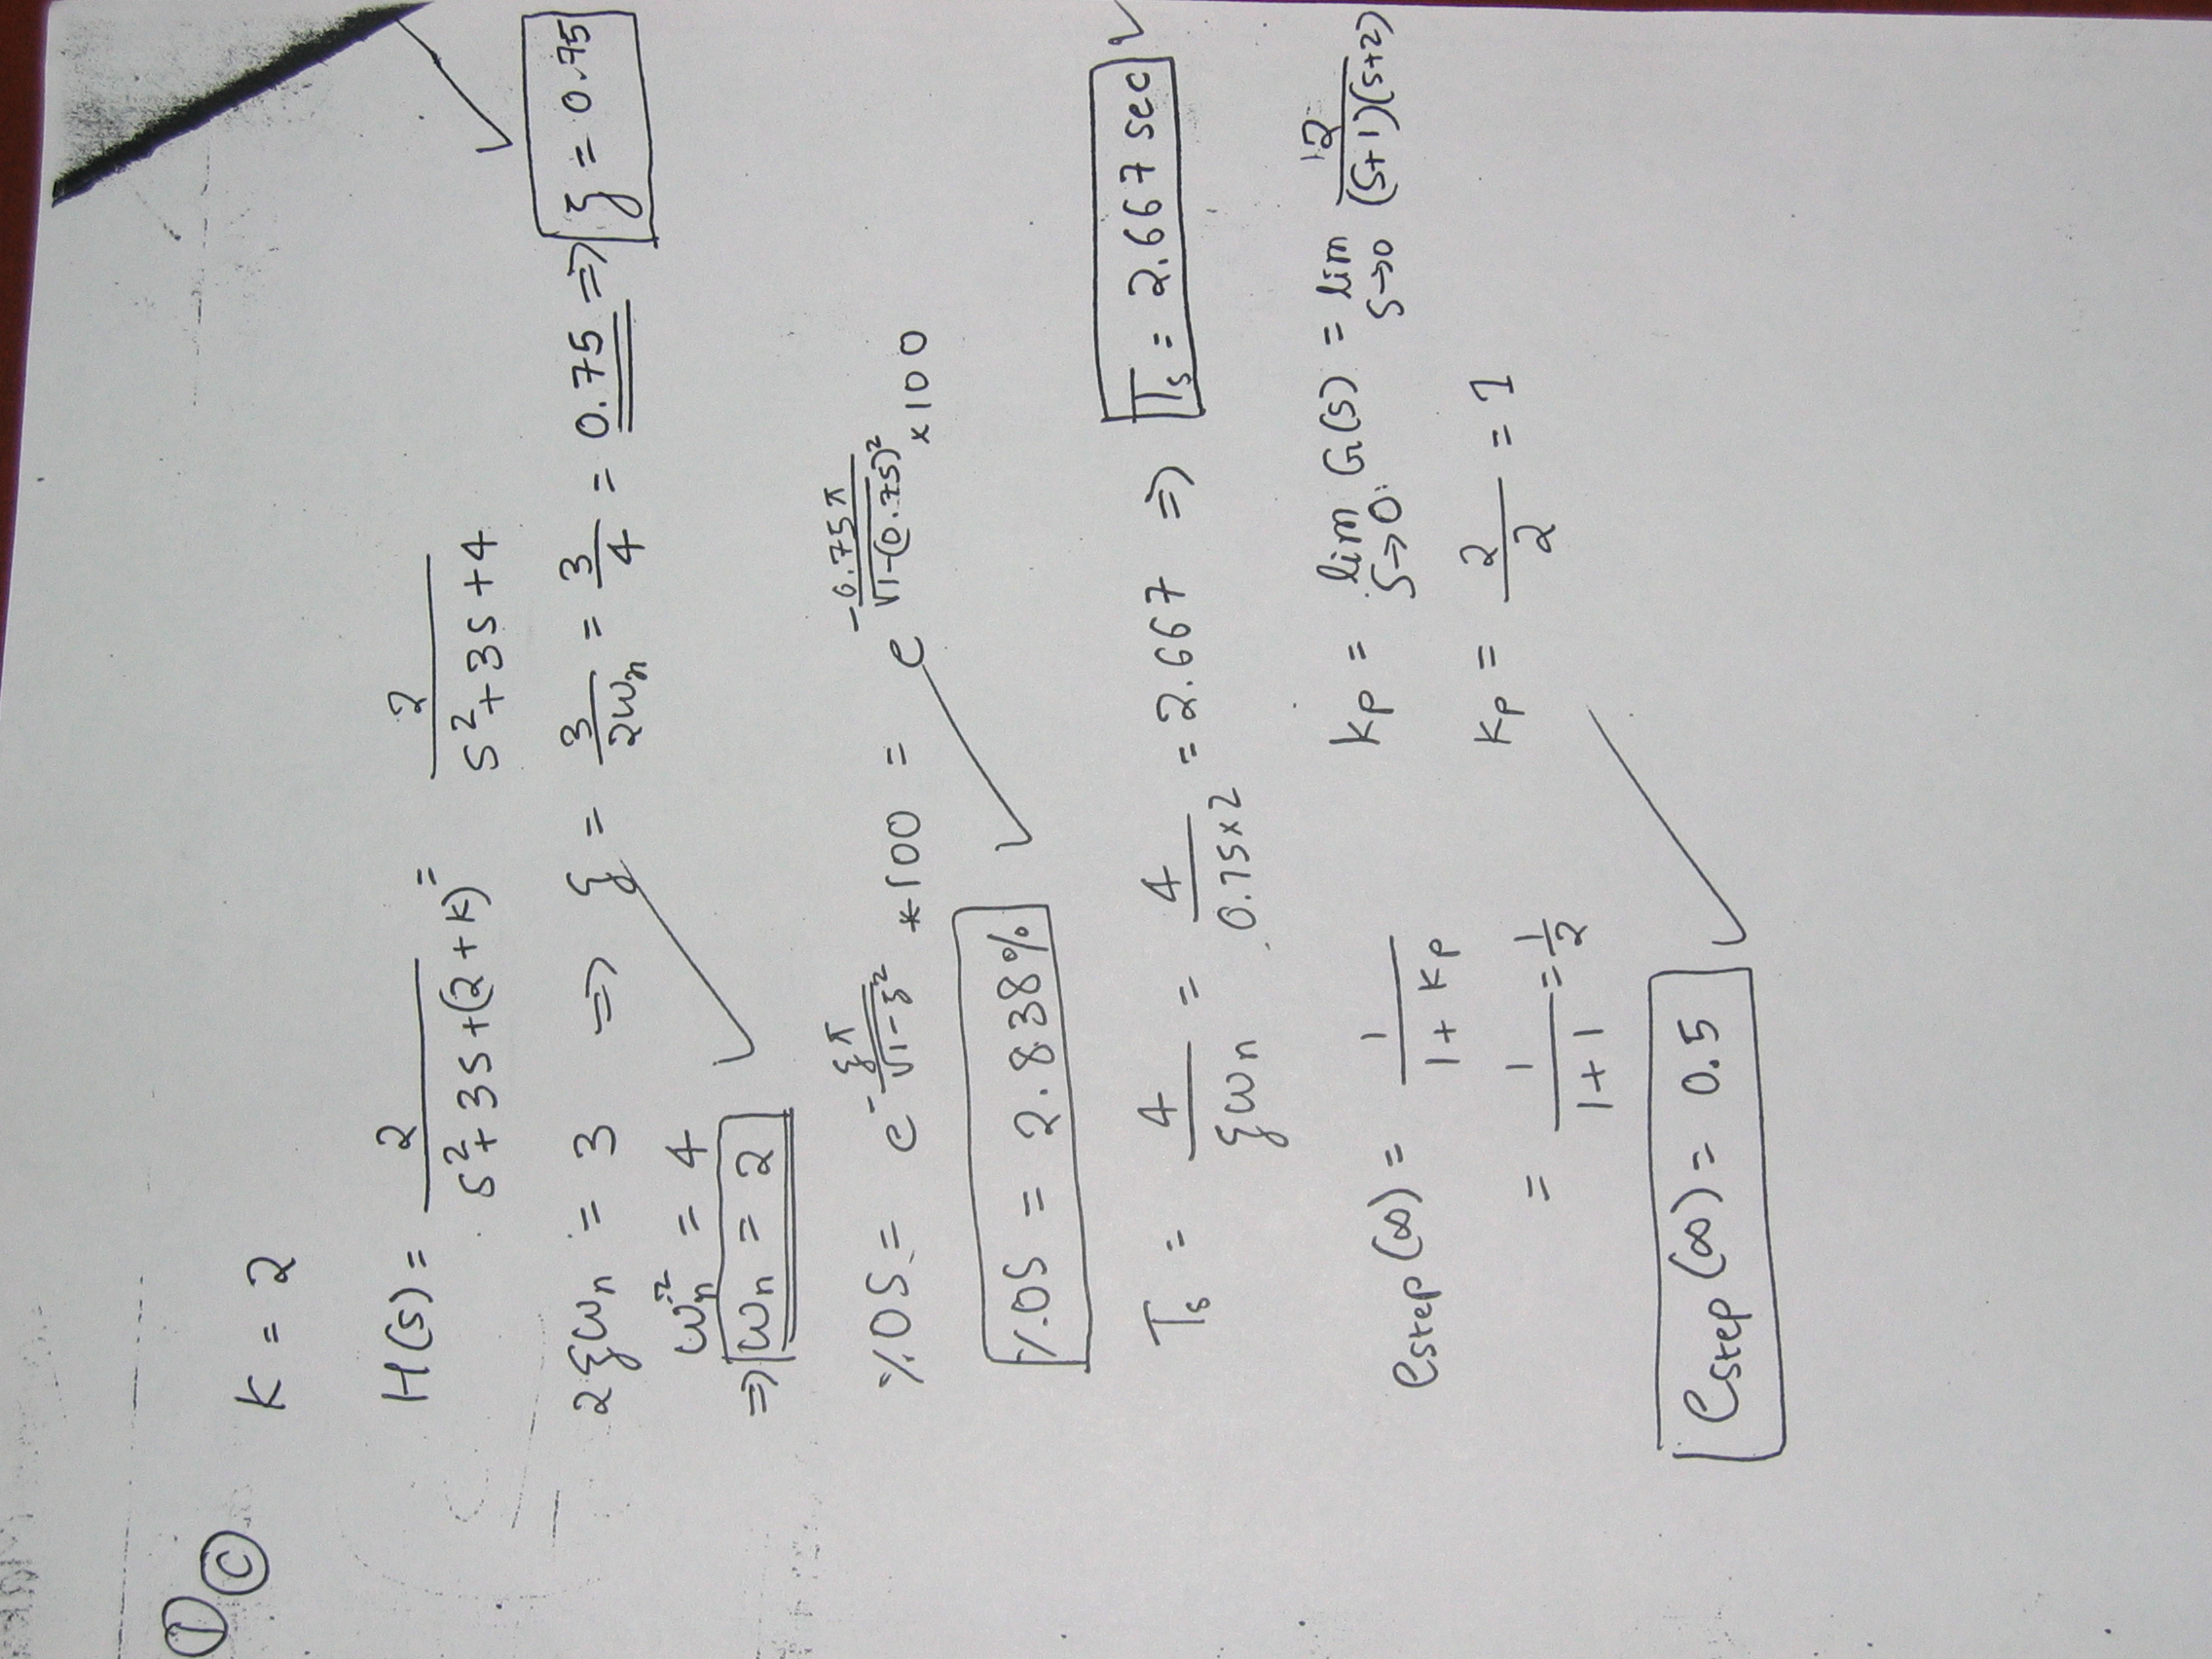 ① ⓒ
K = 2
H(s) = 2/(s²+3s+(2+k)) = 2/(s²+3s+4)
2ξωn = 3 ⇒ ξ = 3/(2ωn) = 3/4 = 0.75 ⇒ ξ = 0.75
ωn² = 4
⇒ ωn = 2
%OS = e^(-ξπ/√(1-ξ²)) *100 = e^(-0.75π/√(1-(0.75)²)) ×100
%OS = 2.838%
Ts = 4/(ξωn) = 4/(0.75×2) = 2.667 ⇒ Ts = 2.667 sec
estep(∞) = 1/(1+Kp) Kp = lim s→0 G(s) = lim s→0 2/((s+1)(s+2))
= 1/(1+1) = 1/2 Kp = 2/2 = 1
estep(∞) = 0.5